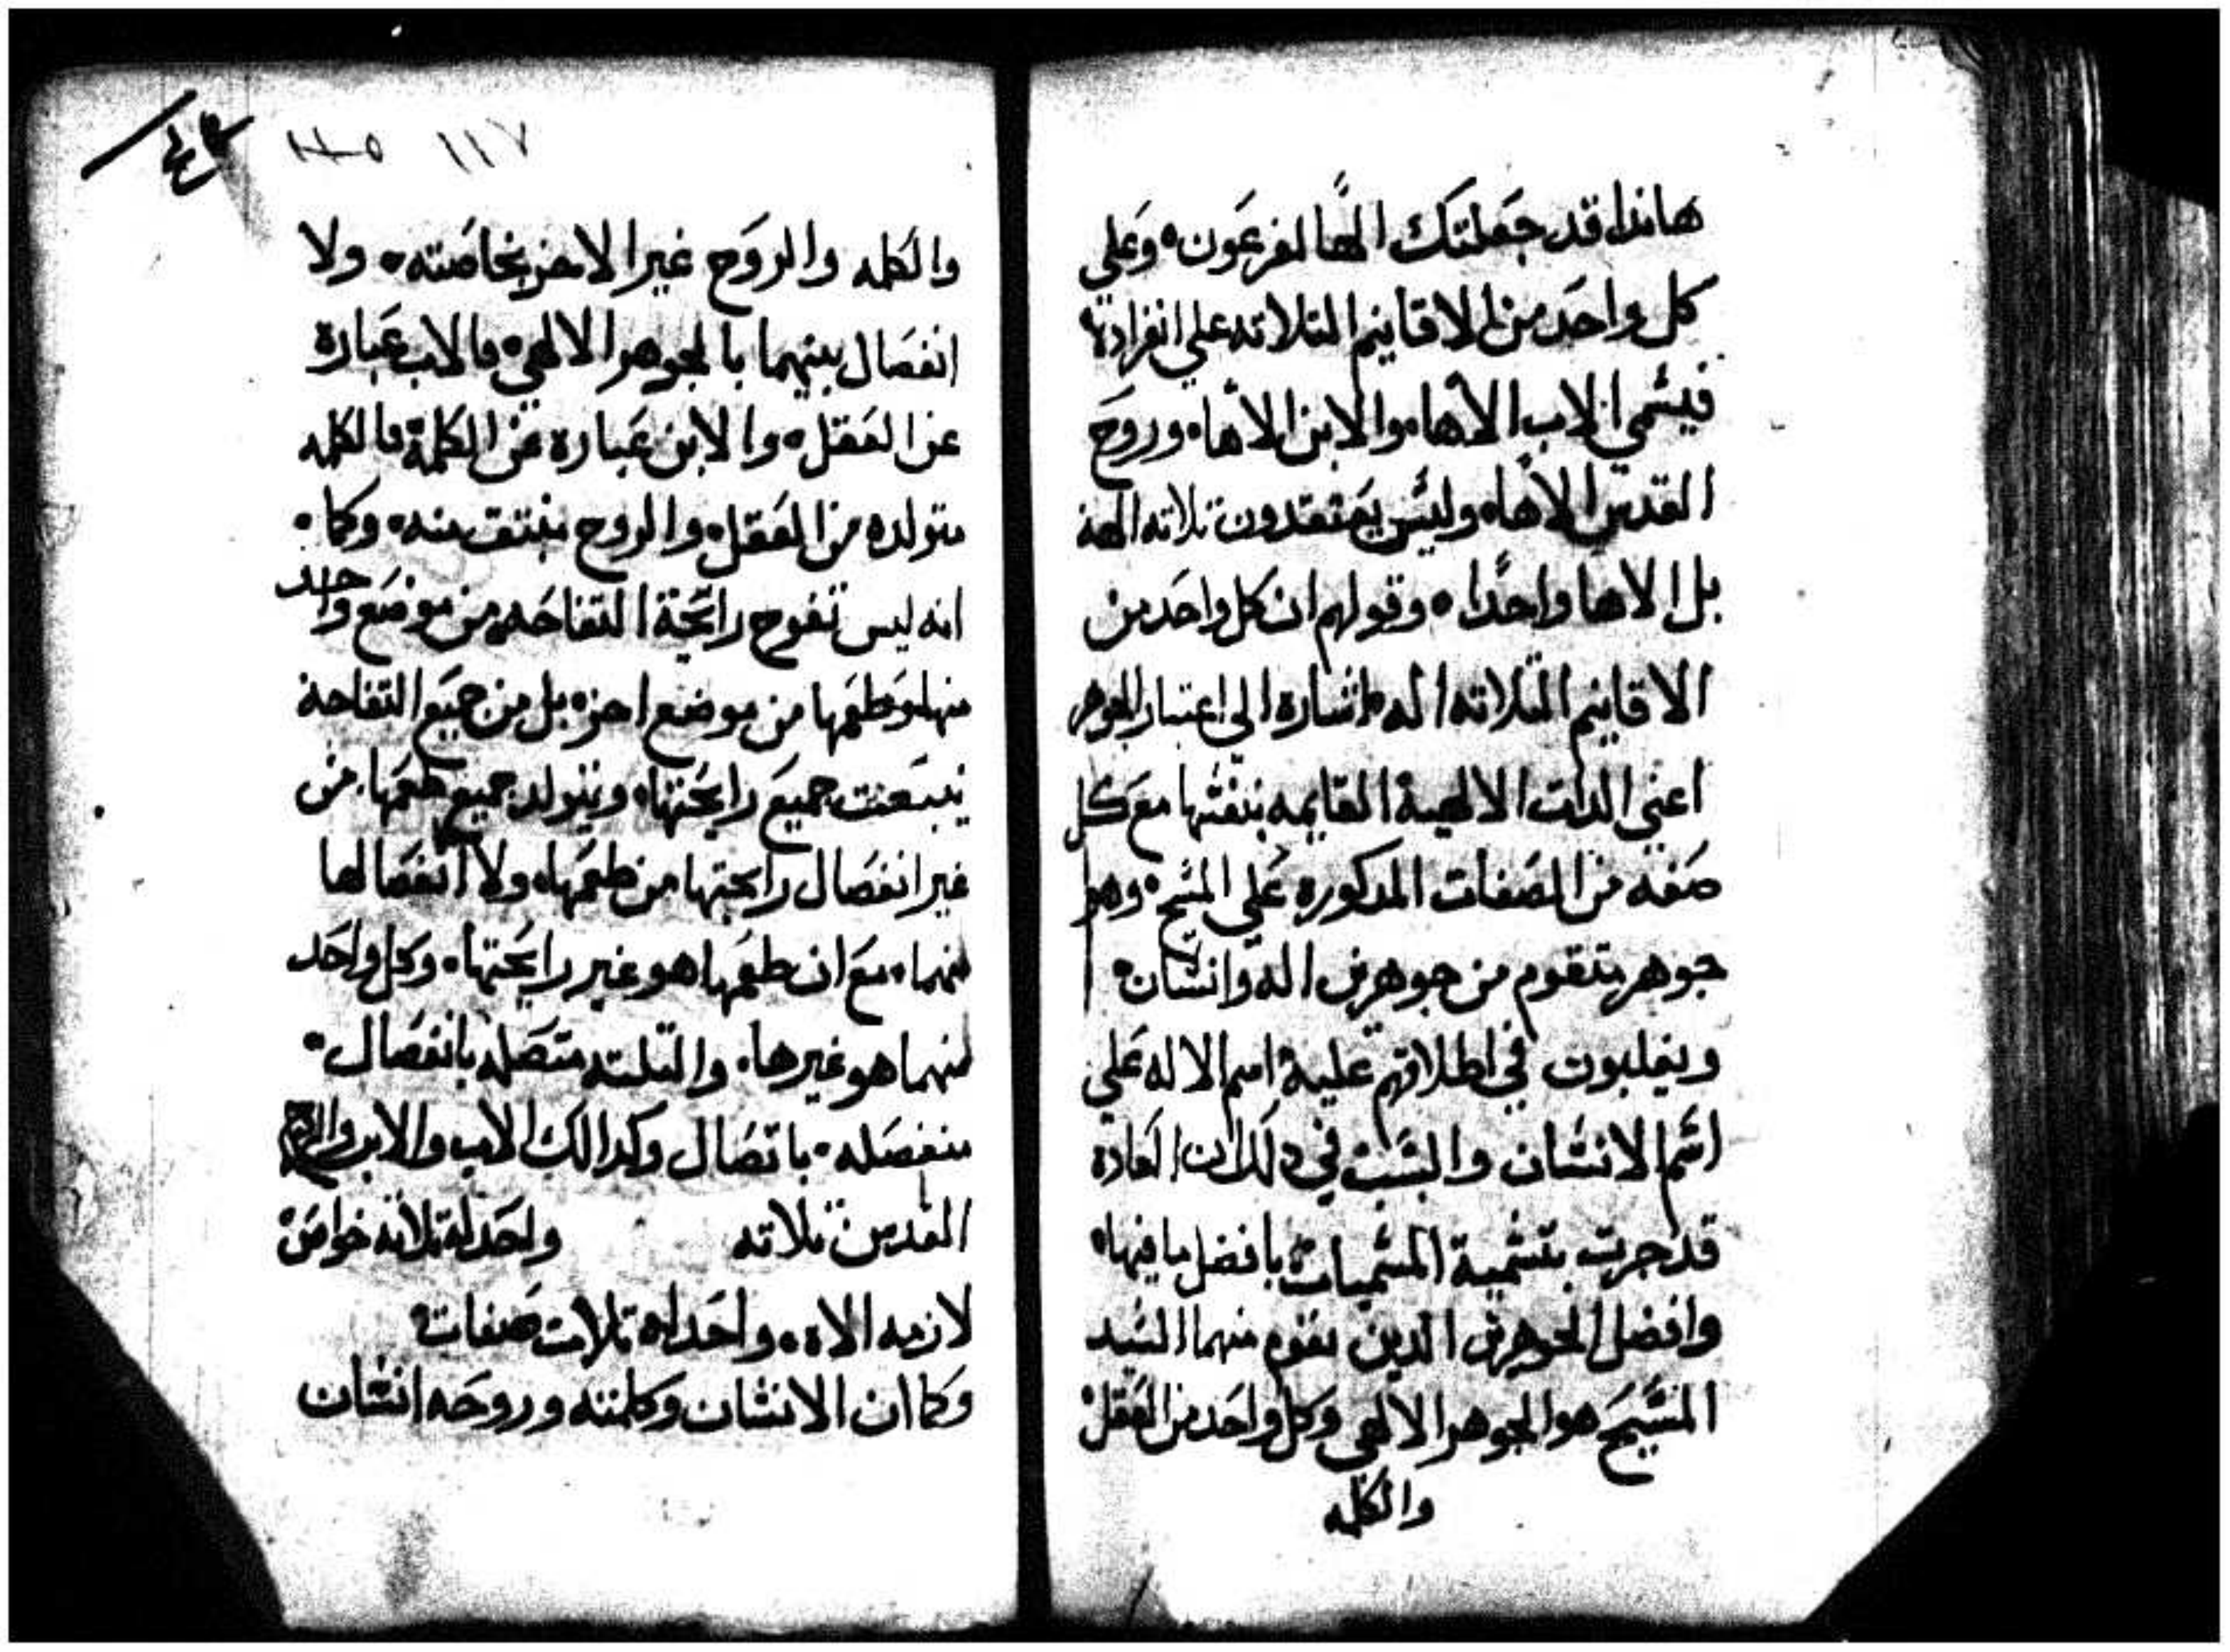 هانذا قد جعلتك الهًا لفرعون • وعلي
كل واحد من الاقانيم التلاته علي انفرادها
فيسمي الاب الاها • والابن الاها • وروح
القدس الاها • وليس يعتقدون تلاته الهة
بل الاها واحدًا • وقولهم ان كل واحد من
الاقانيم التلاته اله • اشاره الي اعتبار الجوهر
اعني الدات الالهية القايمه بنفسها مع كل
صفه من الصفات المدكوره علي المسيح • وهو
جوهر يتقوم من جوهرين اله وانسان •
ويغلبون في اطلاقهم عليه اسم الاله علي
اسم الانسان والسبب في دلك ان العادة
قد جرت بتسمية المسميات بافضل ما فيها •
وافضل الجوهرين الدين تقوم منهما السيد
المسيح هو الجوهر الالهي وكل واحد من العقل
والكلمه
١١٥ ١١٧
والكلمه والروح غير الاخر بخاصته • ولا
انفصال بينهما بالجوهر الالهي • فالاب عبارة
عن العقل • والابن عباره عن الكلمة فالكلمه
متولده من العقل • والروح منبتق منه • وكما •
انه ليس تفوح رائحة التفاحه من موضع واحد
منها وطعمها من موضع اخر • بل من جميع التفاحة
ينبعت جميع رايحتها • ويتولد جميع طعمها • من
غير انفصال رايحتها من طعمها • ولا انفصالها
منهما • مع ان طعمها هو غير رايحتها • وكل واحد
منهما هو غيرها • والتلته متصله بانفصال •
منفصله • باتصال وكدالك الاب والابن والروح
القدس تلاته واحد له تلاته خواص
لازمه الاه • واحد له تلات صفات •
وكما ان الانسان وكلمته وروحه انسان